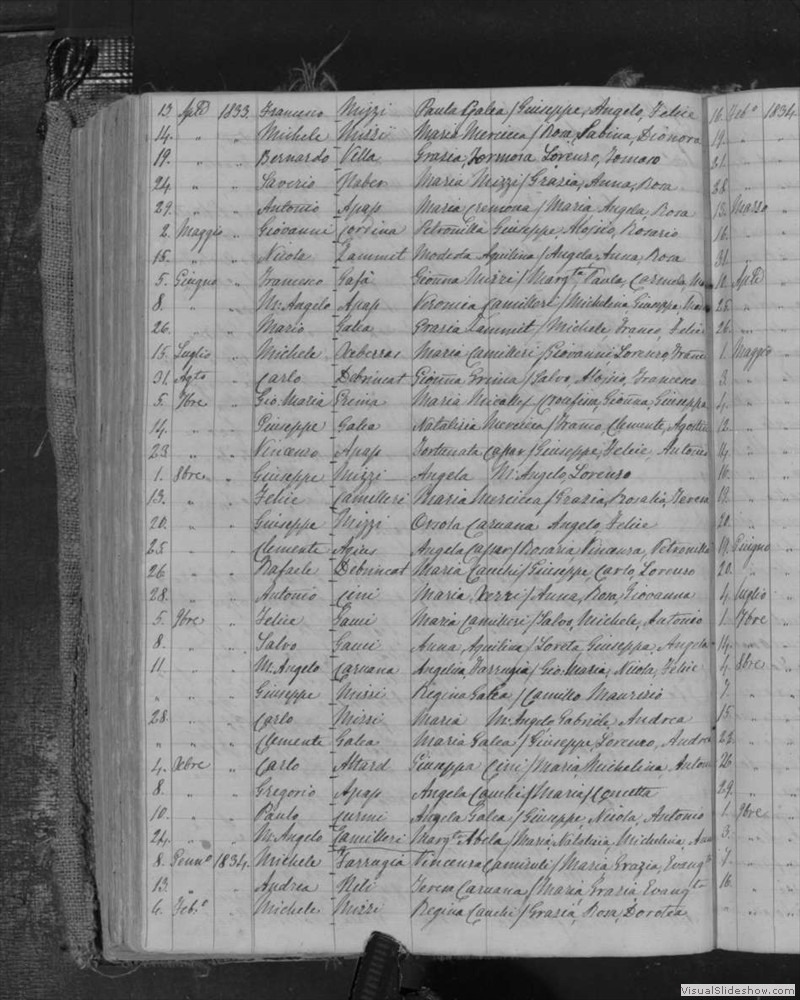 13 Aple 1833. Francesco Mizzi Paula Galea / Giuseppe, Angelo, Felice 16. Feb.o 1834.
14. " " Michele Mizzi Maria Mercieca / Rosa, Sabina, 19. " "
19. " " Bernardo Vella Grazia Formosa Lorenzo, Tomaso 21. " "
24. " " Saverio Maria Mizzi / Grazia, Anna, Rosa 28. " "
29. " " Antonio Apap Maria Cremona / Maria Angela, Rosa 13. Marzo "
2. Maggio " Giovanni Petronilla Giuseppe, Aloisio, Rosario 16. " "
15. " " Nicola Zammit Modesta Aquilina / Angela, Anna, Rosa 31. " "
5. Giugno " Francesco Gafà Gioñna Mizzi / Margta Paula, Carmela, 12. Aple "
8. " " M: Angelo Apap Veronica Camilleri / Michelina, Giuseppa, 25. " "
26. " " Mario Galea Grazia Zammit / Michele, Franco, Felice 26. " "
15. Luglio " Michele Maria Camilleri / Giovanni Lorenzo, 1. Maggio "
31. Agto " Carlo Debrincat Gioñna / Salvo, Aloisio, Francesco 3. " "
5. 7bre " Gio: Maria Maria Micallef / Gioñna, Giuseppa 4. " "
14. " " Giuseppe Galea Natalizia Mercieca / Franco, Clemente, 12. " "
23. " " Vincenzo Apap Fortunata / Giuseppe, Felice, Antonio 14. " "
1. 8bre " Giuseppe Mizzi Angela M: Angelo, Lorenzo 16. " "
13. " " Felice Camilleri Maria Mercieca / Grazia, Rosalia, 18. " "
20. " " Giuseppe Mizzi Orsola Caruana Angelo, Felice 20. " "
25. " " Clemente Agius Angela / Rosaria Vincenza, Petronilla 19. Giugno "
26. " " Rafaele Debrincat Maria Cauchi / Giuseppe, Carlo, Lorenzo 20. " "
28. " " Antonio Cini Maria / Anna, Rosa, Giovanna 4. Luglio "
5. 9bre " Felice Gauci Maria Camilleri / Salvo, Michele, Antonio 1. 7bre "
8. " " Salvo Gauci Anna Aquilina / Loreta, Giuseppa, Angela 14. " "
11. " " M: Angelo Caruana Angelica Farrugia / Gio: Maria, Nicola, Felice 4. 8bre "
" " " Giuseppe Mizzi Regina Galea / Camillo Maurizio 7. " "
28. " " Carlo Mizzi Maria M: Angelo Gabriele, Andrea 15. " "
" " " Clemente Galea Maria Galea / Giuseppe, Lorenzo, Andrea 23. " "
4. Xbre " Carlo Attard Giuseppa Cini / Maria Michelina, 26. " "
8. " " Gregorio Apap Angela Cauchi / Maria / Concetta 29. " "
10. " " Paulo Curmi Angela Galea / Giuseppe, Nicola, Antonio 1. 9bre "
24. " " M: Angelo Camilleri Margta Abela / Maria, Natalizia, Michelina, 3. " "
8. Genno 1834. Michele Farrugia Vincenza / Maria Grazia, 7. " "
13. " " Andrea Caruana / Maria Grazia 16. " "
6. Feb.o " Michele Mizzi Regina Cauchi / Grazia, Rosa, Dorotea " "
VisualSlideshow.com